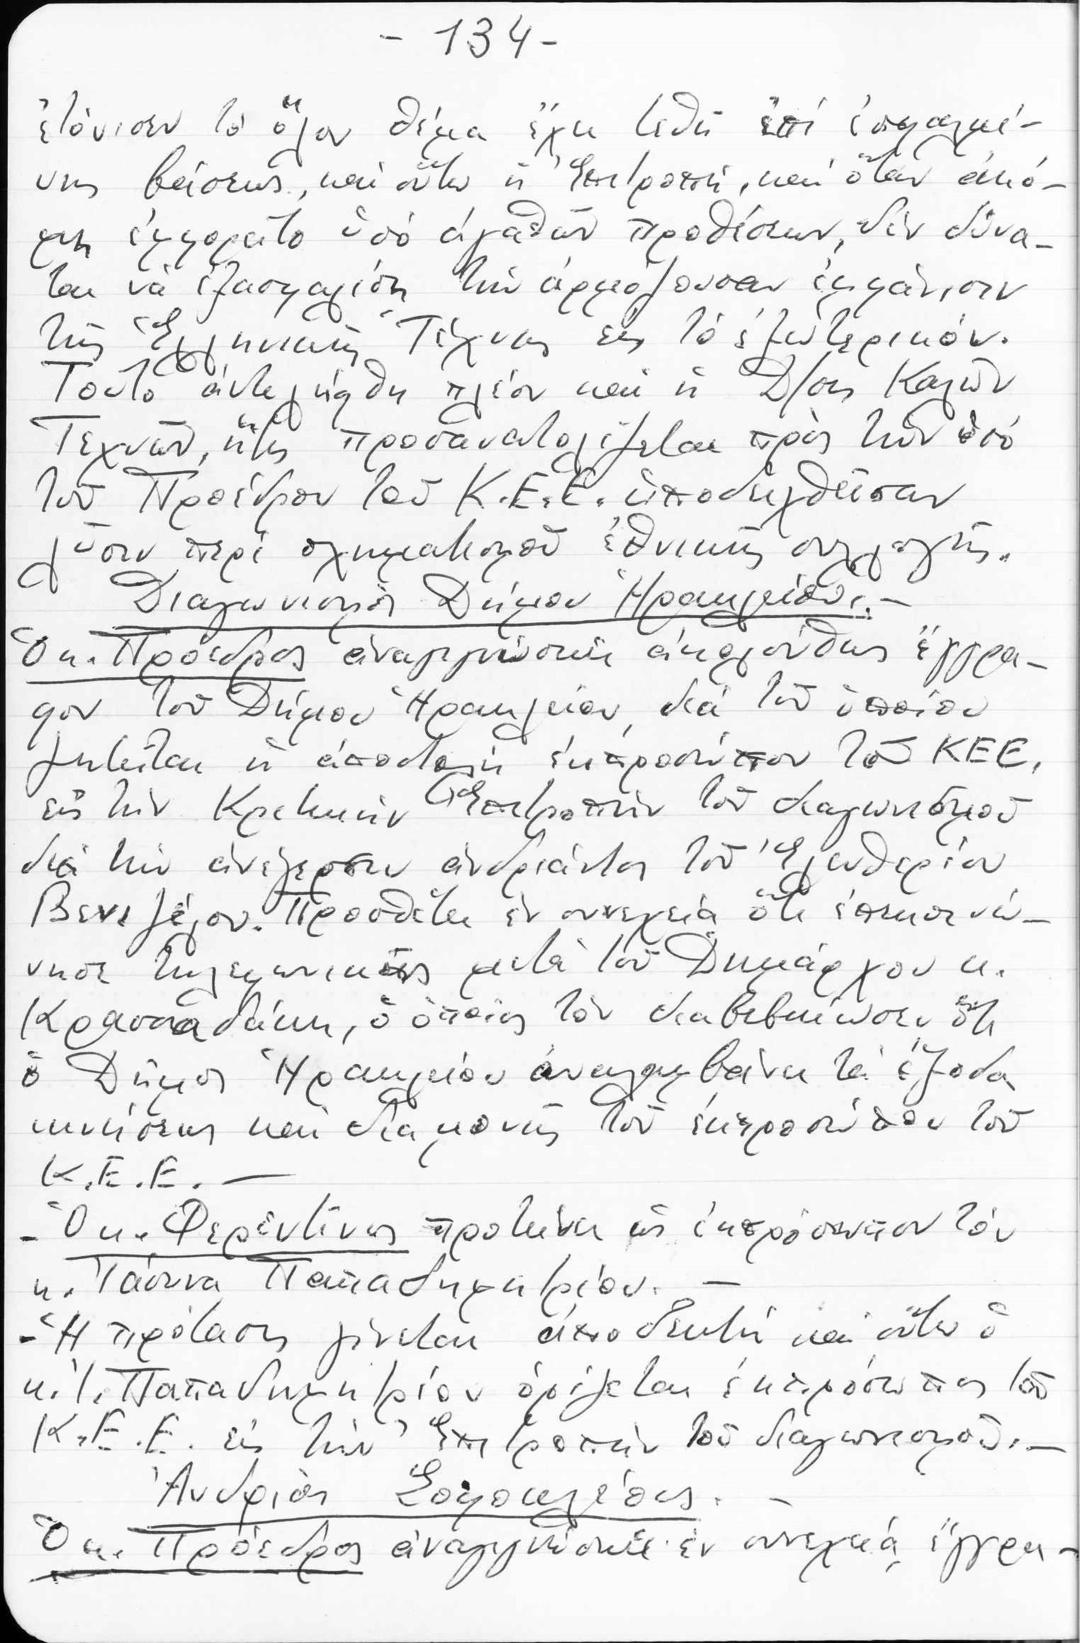 - 134 -
ἐτόνισεν τὸ ὅλον θέμα ἔχει τεθῆ ἐπί ἐσφαλμέ-
νης βάσεως, καί οὕτω ἡ Ἐπιτροπή, καί ὅταν ἀκό-
μη ἐμφορεῖτο ὑπό ἀγαθῶν προθέσεων, δέν δύνα-
ται νά ἐξασφαλίση τήν ἁρμόζουσαν ἐμφάνισιν
τῆς Ἑλληνικῆς Τέχνης εἰς τό ἐξωτερικόν.
Τοῦτο ἀντελήφθη πλέον καί ἡ Δ/σις Καλῶν
Τεχνῶν, ἥτις προσανατολίζεται πρός τήν ὑπό
τοῦ Προέδρου τοῦ Κ.Ε.Ε. ὑποδειχθεῖσαν
λύσιν περί σχηματισμοῦ ἐθνικῆς συλλογῆς.
Διαγωνισμός Δήμου Ἡρακλείου.-
Ὁ κ. Πρόεδρος ἀναγιγνώσκει ἀκολούθως ἔγγρα-
φον τοῦ Δήμου Ἡρακλείου, διά τοῦ ὁποίου
ζητεῖται ἡ ἀποστολή ἐκπροσώπου τοῦ ΚΕΕ.
εἰς τήν Κριτικήν Ἐπιτροπήν τοῦ διαγωνισμοῦ
διά τήν ἀνέγερσιν ἀνδριάντος τοῦ Ἐλευθερίου
Βενιζέλου. Προσθέτει ἐν συνεχεία ὅτι ἐπικοινώ-
νησε τηλεφωνικῶς μετά τοῦ Δημάρχου κ.
Κρασσαδάκη, ὁ ὁποῖος τόν διαβεβαίωσεν ὅτι
ὁ Δῆμος Ἡρακλείου ἀναλαμβάνει τά ἔξοδα
κινήσεως καί διαμονῆς τοῦ ἐκπροσώπου τοῦ
Κ.Ε.Ε. —
- Ὁ κ. Φερεντῖνος προτείνει ὡς ἐκπρόσωπον τόν
κ. Παπαδημητρίου. —
- Ἡ πρότασις γίνεται ἀποδεκτή καί οὕτω ὁ
κ. Ι. Παπαδημητρίου ὁρίζεται ἐκπρόσωπος τοῦ
Κ.Ε.Ε. εἰς τήν Ἐπιτροπήν τοῦ διαγωνισμοῦ.—
Ἀνδριάς Σοφοκλέους. -
Ὁ κ. Πρόεδρος ἀναγιγνώσκει ἐν συνεχεία ἔγγρα-